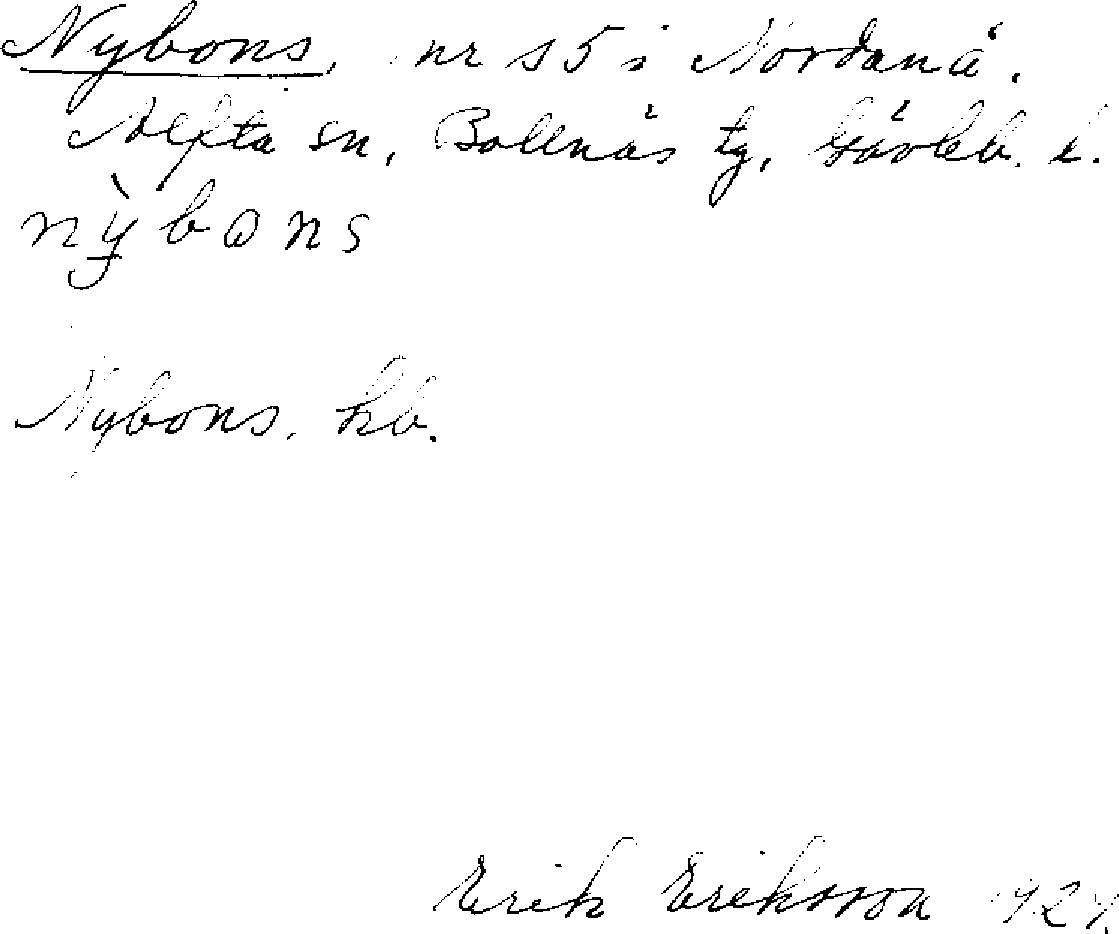 Nybons, nr 15 i Nordanå.
Alfta sn, Bollnäs tg, Gävleb. l.
nỳbons
Nybons, kb.
Erik Eriksson